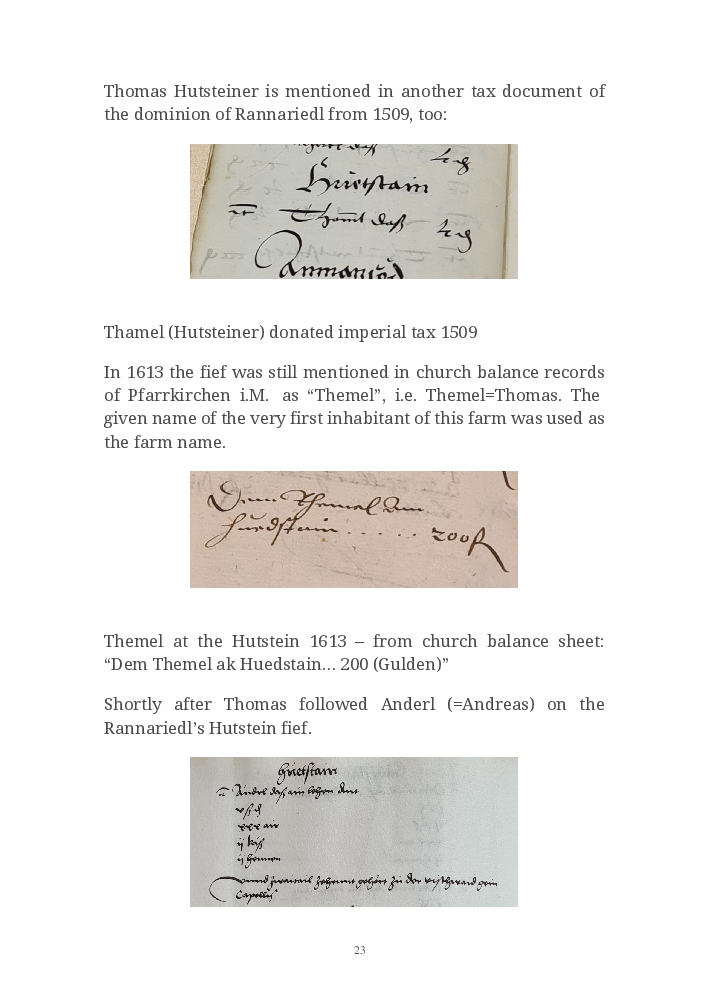 Thomas Hutsteiner is mentioned in another tax document of
the dominion of Rannariedl from 1509, too:
Huetstain
Thaml daß
Thamel (Hutsteiner) donated imperial tax 1509
In 1613 the fief was still mentioned in church balance records
of Pfarrkirchen i.M. as “Themel”, i.e. Themel=Thomas. The
given name of the very first inhabitant of this farm was used as
the farm name.
Dem Themel am
Huedstain . . . . . . 200 f
Themel at the Hutstein 1613 – from church balance sheet:
“Dem Themel ak Huedstain... 200 (Gulden)”
Shortly after Thomas followed Anderl (=Andreas) on the
Rannariedl’s Hutstein fief.
Huetstain
Anderl daß ain lehen dint
xxx air
ij keß
ij hennen
23